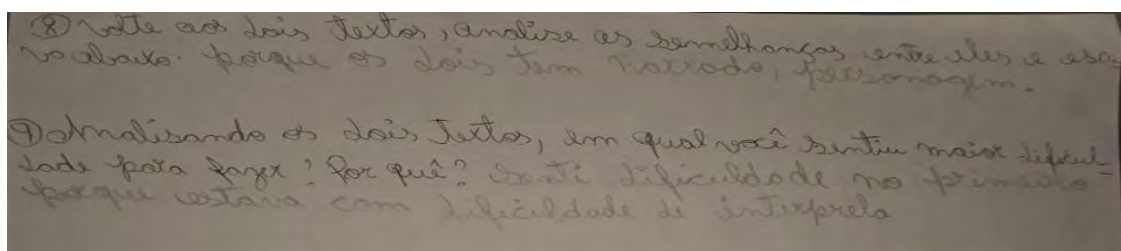 8 volte aos dois textos, analise as semelhanças entre eles e escre
va abaixo. porque os dois tem narrado, personagem.
9 Analisando os dois textos, em qual você sentiu maior dificul-
dade para fazer? Por quê? senti dificuldade no primeiro
porque estava com dificuldade de interpreta